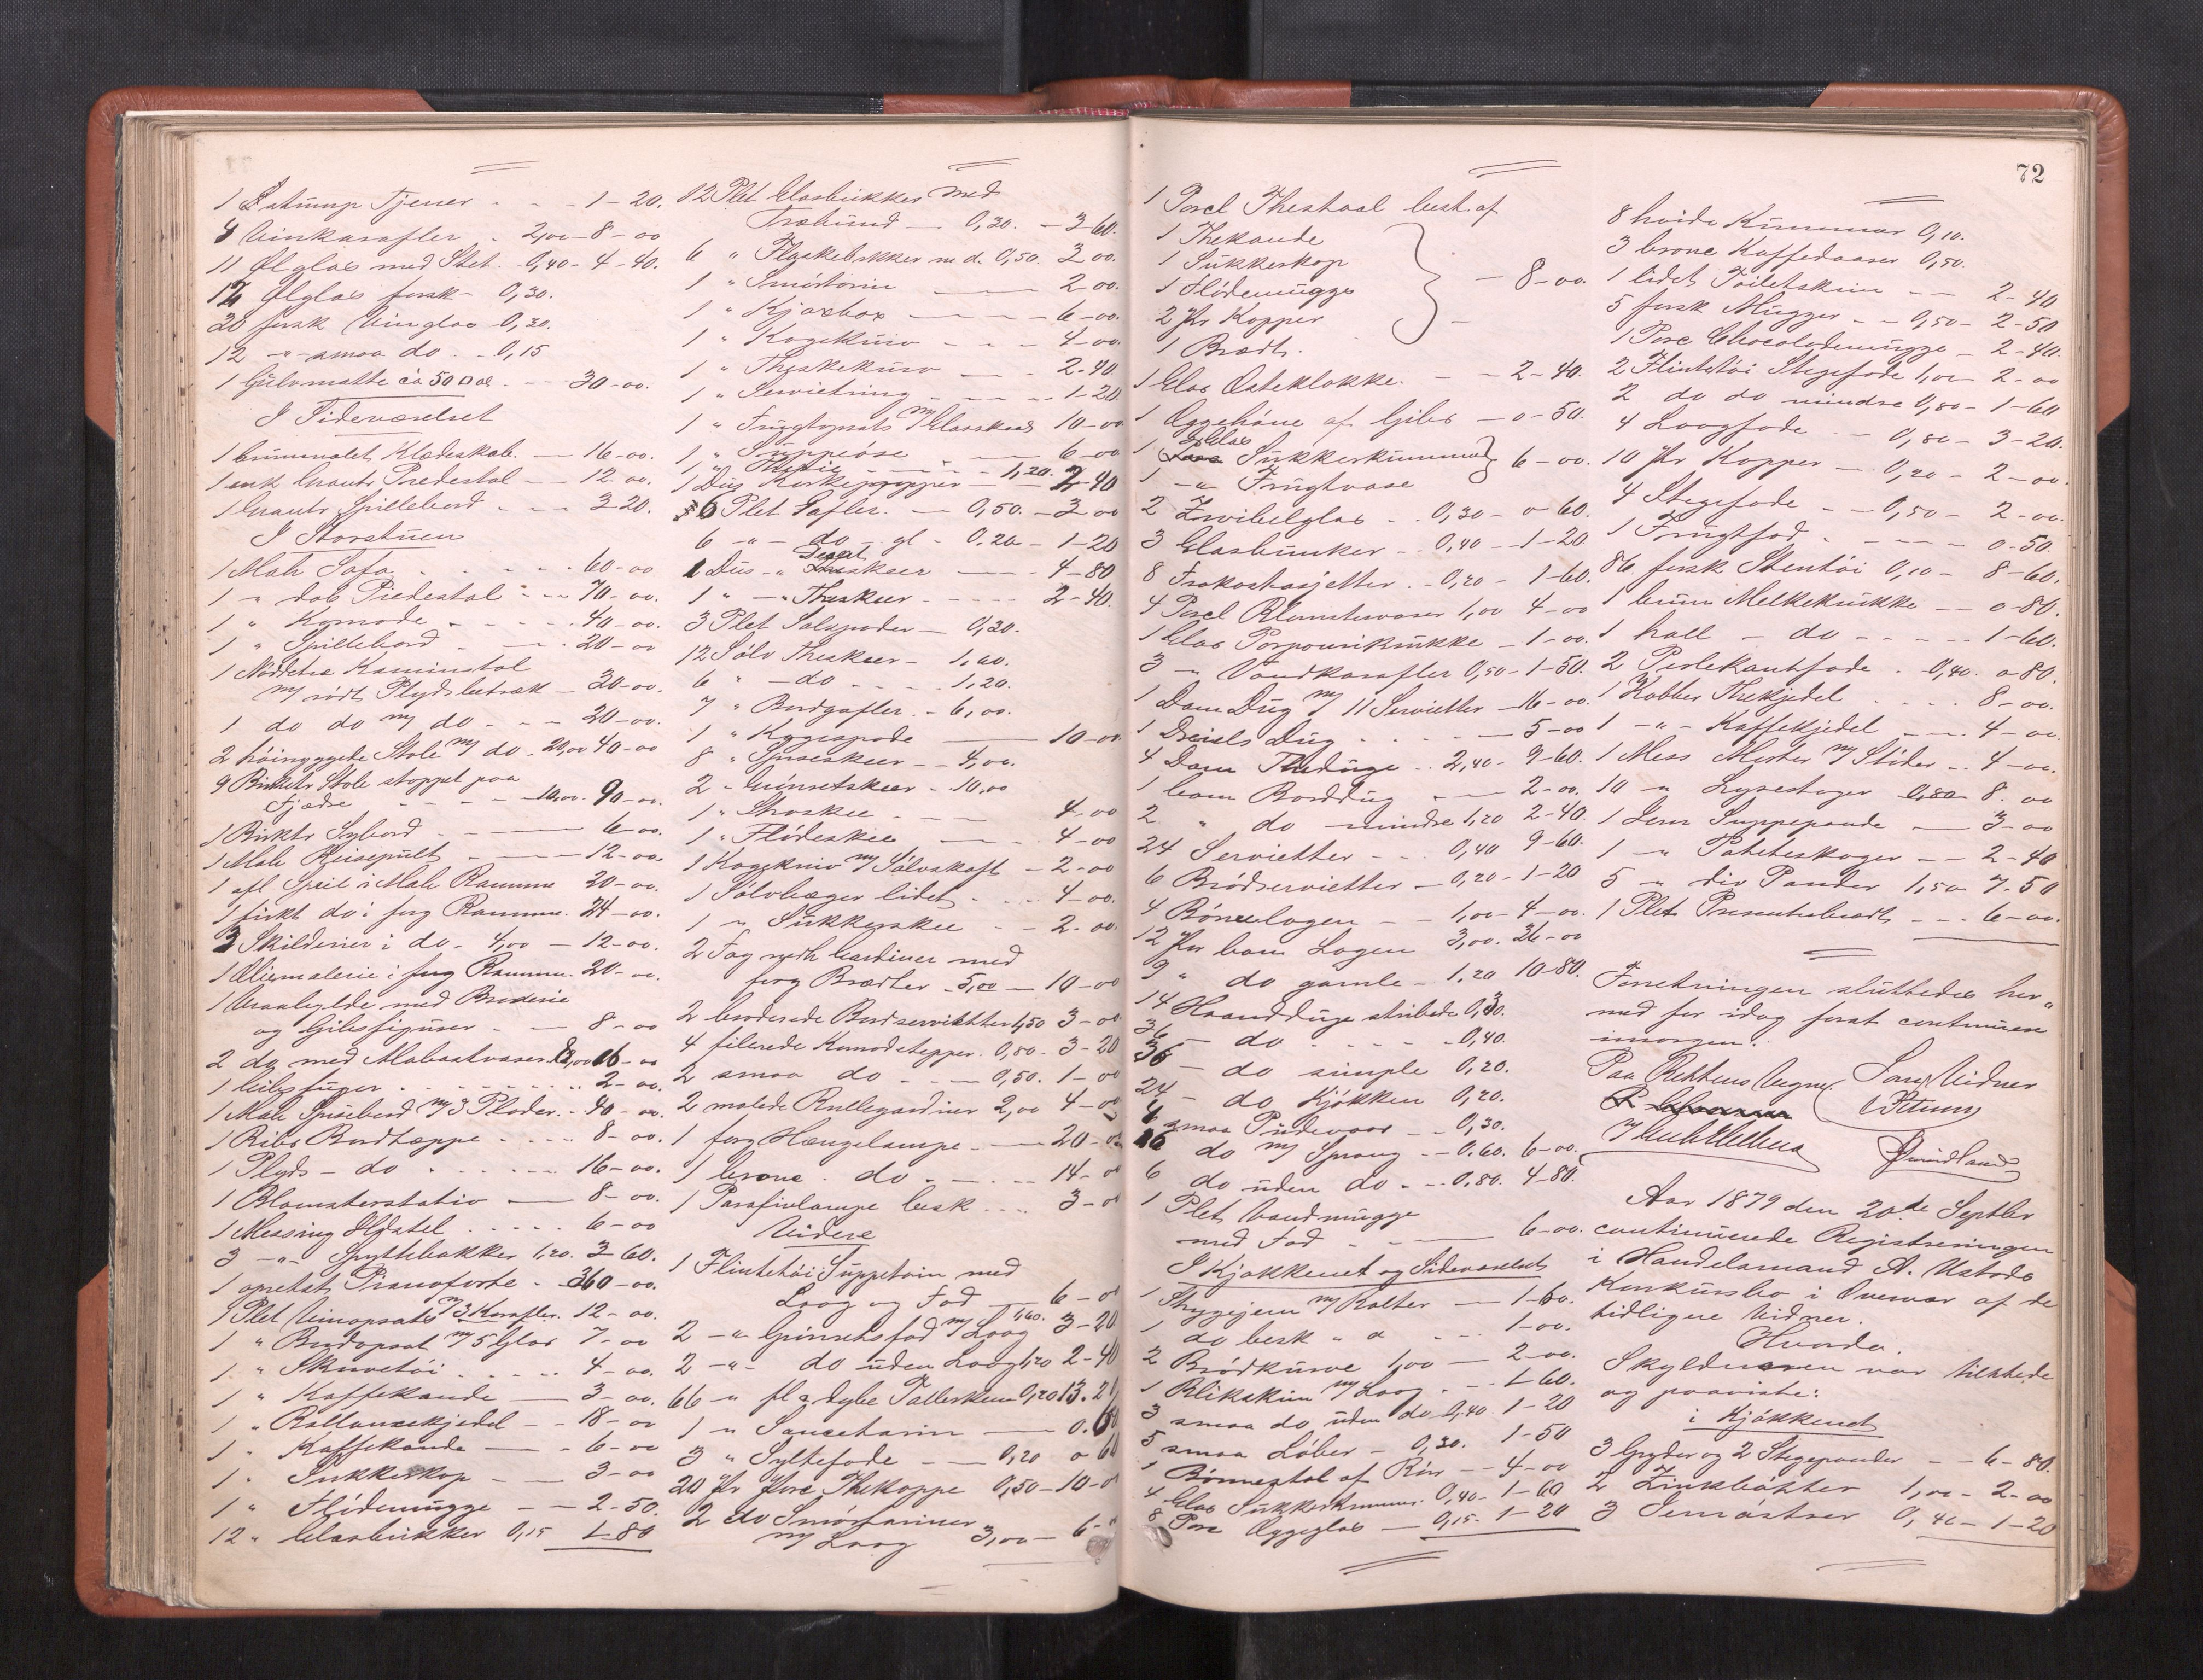 1 Stump Tjener - - - 1-20.
4 Vinkarafler - 2,00 - 8-00
11 Ølglas med Stet - 0,40 - 4-40.
12 Ølglas forsk - 0,30.
20 forsk Vinglas 0,30.
12 -"- smaa do - 0,15
1 Gulvmatte ca 50 □ al - - 30-00.
I Sideværelset
1 brunmalet Klædeskab. - 16-00.
1 enk brunt Piedestal - - 12.00.
1 brunt Spillebord - - - 3-20.
I Storstuen
1 Mah Sofa - - - - 60-00
1 " dob Piedestal - - 70-00.
1 " Komode - - - 40-00.
1 " Spillebord - - - 20-00
1 Nøddetræ Kaminstol
m/ rødt Plydsbetræk - 30-00.
1 do do m/ do - - - 20-00.
2 høiryggede Stole m/ do - 20,00 40-00
9 Birketr Stole stoppet paa
Fjædre - - - 10,00 90-00.
1 Birktr Sybord - - - 6-00.
1 Mah Reisepult - - - 12-00.
1 afl Speil i Mah Ramme 20-00.
1 firkt do i forg Ramme. 24-00.
3 Skilderier i do - 4,00 - 12-00.
1 Oliemaleri i forg Ramme. 20-00.
1 Vraahylde med Broderie
og Gibsfigurer - - 8-00
2 do med Alabastvaser 8,00 16-00
1 Gibsfuger - - - - 2-00.
1 Mah Spisebord m/ 3 Plader - 40-00.
1 Ribs Bordtæppe - - - 8-00.
1 Plyds - do - - - - 16-00.
1 Blomsterstativ - - 8-00.
1 Messing Ildstel - - - 6-00
3 -"- Spyttebakker 1,20. 3-60.
1 opretst. Pianoforte - 360-00.
1 Plet Vinopsats m/ 3 Karafler. 12-00.
1 " Bordopsat m/ 5 Glas 7-00
1 " Skrivetøi - - - - 4-00.
1 " Kaffekande - - 3-00.
1 " Ballancekjedel - - 18-00
1 " Kaffekande - - 6-00
1 " Sukkerkop - - 3-00
1 " Flødemugge - - 2-50.
12 " Glasbrikker 0,15 1-80
12 Plet Glasbrikker med
Træbund - 0,30. - 3-60.
6 " Flaskebrikker m d. 0,50. 3 00.
1 " Smørterrin - - 2 00.
1 " Kjæxbox - - - 6-00.
1 " Kagekurv - - - 4-00.
1 " Theskekurv - - 2-40
1 " Servietring - - - 1-20
1 " Frugtopsats m/ Glasskaal 10-00
1 " Suppeøse - - - 6-00
1 " Thesie - - - 1,20.
1 Dus Korkepropper - - 2-40
6 Plet Gafler. - 0,50. - 3 00
6 -"- do - gl - 0.20 - 1-20
1 Dus -"- Desert skeer - - 4-80
1 " -"- Theskeer - - - - 2-40.
3 Plet Saltspader - 0,30.
12 Sølv Theskeer - 1,60.
6 " - do - - - 1,20.
7 " Bordgafler. - 6,00.
1 " Kagespade - - 10-00
8 " Spiseskeer - - 4,00.
2 - Grønsetskeer - 10,00
1 " Strøskee - - - 4-00
1 " Flødeskee - - - 4-00
1 Kagekniv m/ Sølvskaft - 2-00
1 Sølvbæger lidet - - - 4-00.
1 " Sukkerskee - - 2-00
2 Fag rødt Gardiner med
forg Brædter - 5,00 - 10-00
2 broderede Bordservietter 1,50 3-00
4 filerede Komodetepper. 0,80. 3-20
2 smaa do - - - 0,50. 1-00
2 malede Rullegardiner 2,00 4-00
1 forg Hængelampe - - 20-00
1 brone - do - - - 14-00
1 Parafinlampe besk - - - 3-00
Videre
1 Flintetøi Suppeterin med
Laag og Fad - 6-00
2 -"- Grønsetsfad m/ Laag 1,60. 3-20
2 -"- do uden Laag 1,20 2-40
66 -" fl & dybe Tallerkener 0,20 13.20
1 -" Sauceterin - - 0.60
3 " Syltefade - - 0,20 0 60
20 Pr Porc Thekopper 0,50 - 10-00
2 do Smørteriner
m/ Laag 3,00 - 6-
72
1 Porcl Thestaal best. af
1 Thekande
1 Sukkerkop
1 Flødemugge
2 Pr Kopper
1 Brædt.
- 8-00.
1 Glas Osteklokke. - - 2-40.
1 Æggehøne af Gibs - 0-50.
1 Glas Sukkerkumme
1 -"- Frugtvase
6-00.
2 Zwibelglas - - 0,30 - 0 60.
3 Glasbunker - - 0,40 - 1-20
8 Frokostasjetter. - 0,20 - 1-60.
4 Porcl Blomstervaser 1,00 4-00
1 Glas Porpourikrukke - 1-00.
3 -" Vandkarafler 0,50 - 1-50.
1 Dam Dug m/ 11 Servietter - 16-00.
1 Dreiels Dug - - - 5-00
4 Dam Theduge - 2,40. 9-60.
1 bom Borddug - - 2-00.
2 " do mindre 1,20 2-40.
24 Servietter - - - 0,40 9-60.
6 Brødservietter - 0,20 - 1-20
4 Børnelagen - - 1,00 - 4-00.
12 Pr bom Lagen 3,00. 36-00
9 " do gamle - 1.20 10-80.
14 Haandduge stribede 0,30.
36 - do - - - - 0,40.
36 - do simple 0,20.
24 - do Kjøkken 0,20.
4 smaa Pudevaar - - 0,30.
16 do m/ Sprang - - 0.60. 6-00.
6 do uden do - - 0.80. 4-80.
1 Plet Vandmugge
med Fad - - - 6-00.
I Kjøkkenet og Sideværelset
1 Strygejern m/ Bolter - 1-60.
1 do besk " d - - 1-00.
2 Brødkurve 1,00 - 2-00.
1 Blikskrin m/ Laag - - 1-60.
3 smaa do uden do 0,40. 1-20
5 smaa Løber - 0,30. 1-50
1 Børnestol af Rør - - 4-00
4 Glas Sukkerkummer. 0,40 - 1-60
8 Porc Æggeglas - 0,15. 1-20
8 hvide Kummer 0,10.
3 brone Kaffedaaser 0,50.
1 lidet Toiletskrin - - 2-40
5 forsk Mugger - - 0,50 - 2-50
1 Porc Chocolademugge - 2-40.
2 Flintetøi Stegefade 1,00 2-00
2 do do mindre 0,80 - 1-60
4 Laagfade - - 0,80 - 3-20.
10 Pr Kopper - - 0,20 - 2-00.
4 Stegefade - - 0,50 - 2-00.
1 Frugtfad - - - - 0-50.
86 forsk Stentøi 0,10 - 8-60.
1 brun Melkekrukke - - 0-80.
1 hall - do - - - - - 1-60.
2 Perlekantfade - 0,40. 0 80.
1 Kobber Thekjedel - - - 8-00.
1 -"- Kaffekjedel - - - 4-00.
1 Mess Morter m/ Støder - - 4-00.
10 -" Lysestager 0,80 8.00
1 Jern Suppepande - 3-00
1 -" Poteteskoger - - 2-40
5 -" div Pander 1,50 7-50
1 Plet Presenterbredt - - - 6-00.
Forretningen sluttedes her"
med for idag forat continuere
imorgen.
Paa Rettens Vegne. Som Vidner
Aar 1879 den 20de Septbr
continuerede Registreringen
i Handelsmand A. Ustads
Konkursbo i Overvær af de
tidligere Vidner.
Hvorda.
Skyldneren var tilstede
og paaviste:
i Kjøkkenet
3 Gryder og 2 Stegepander - - 6-80.
2 Zinkbøtter 1,00 - 2-00
3 Jernøstrer 0,40 - 1-20